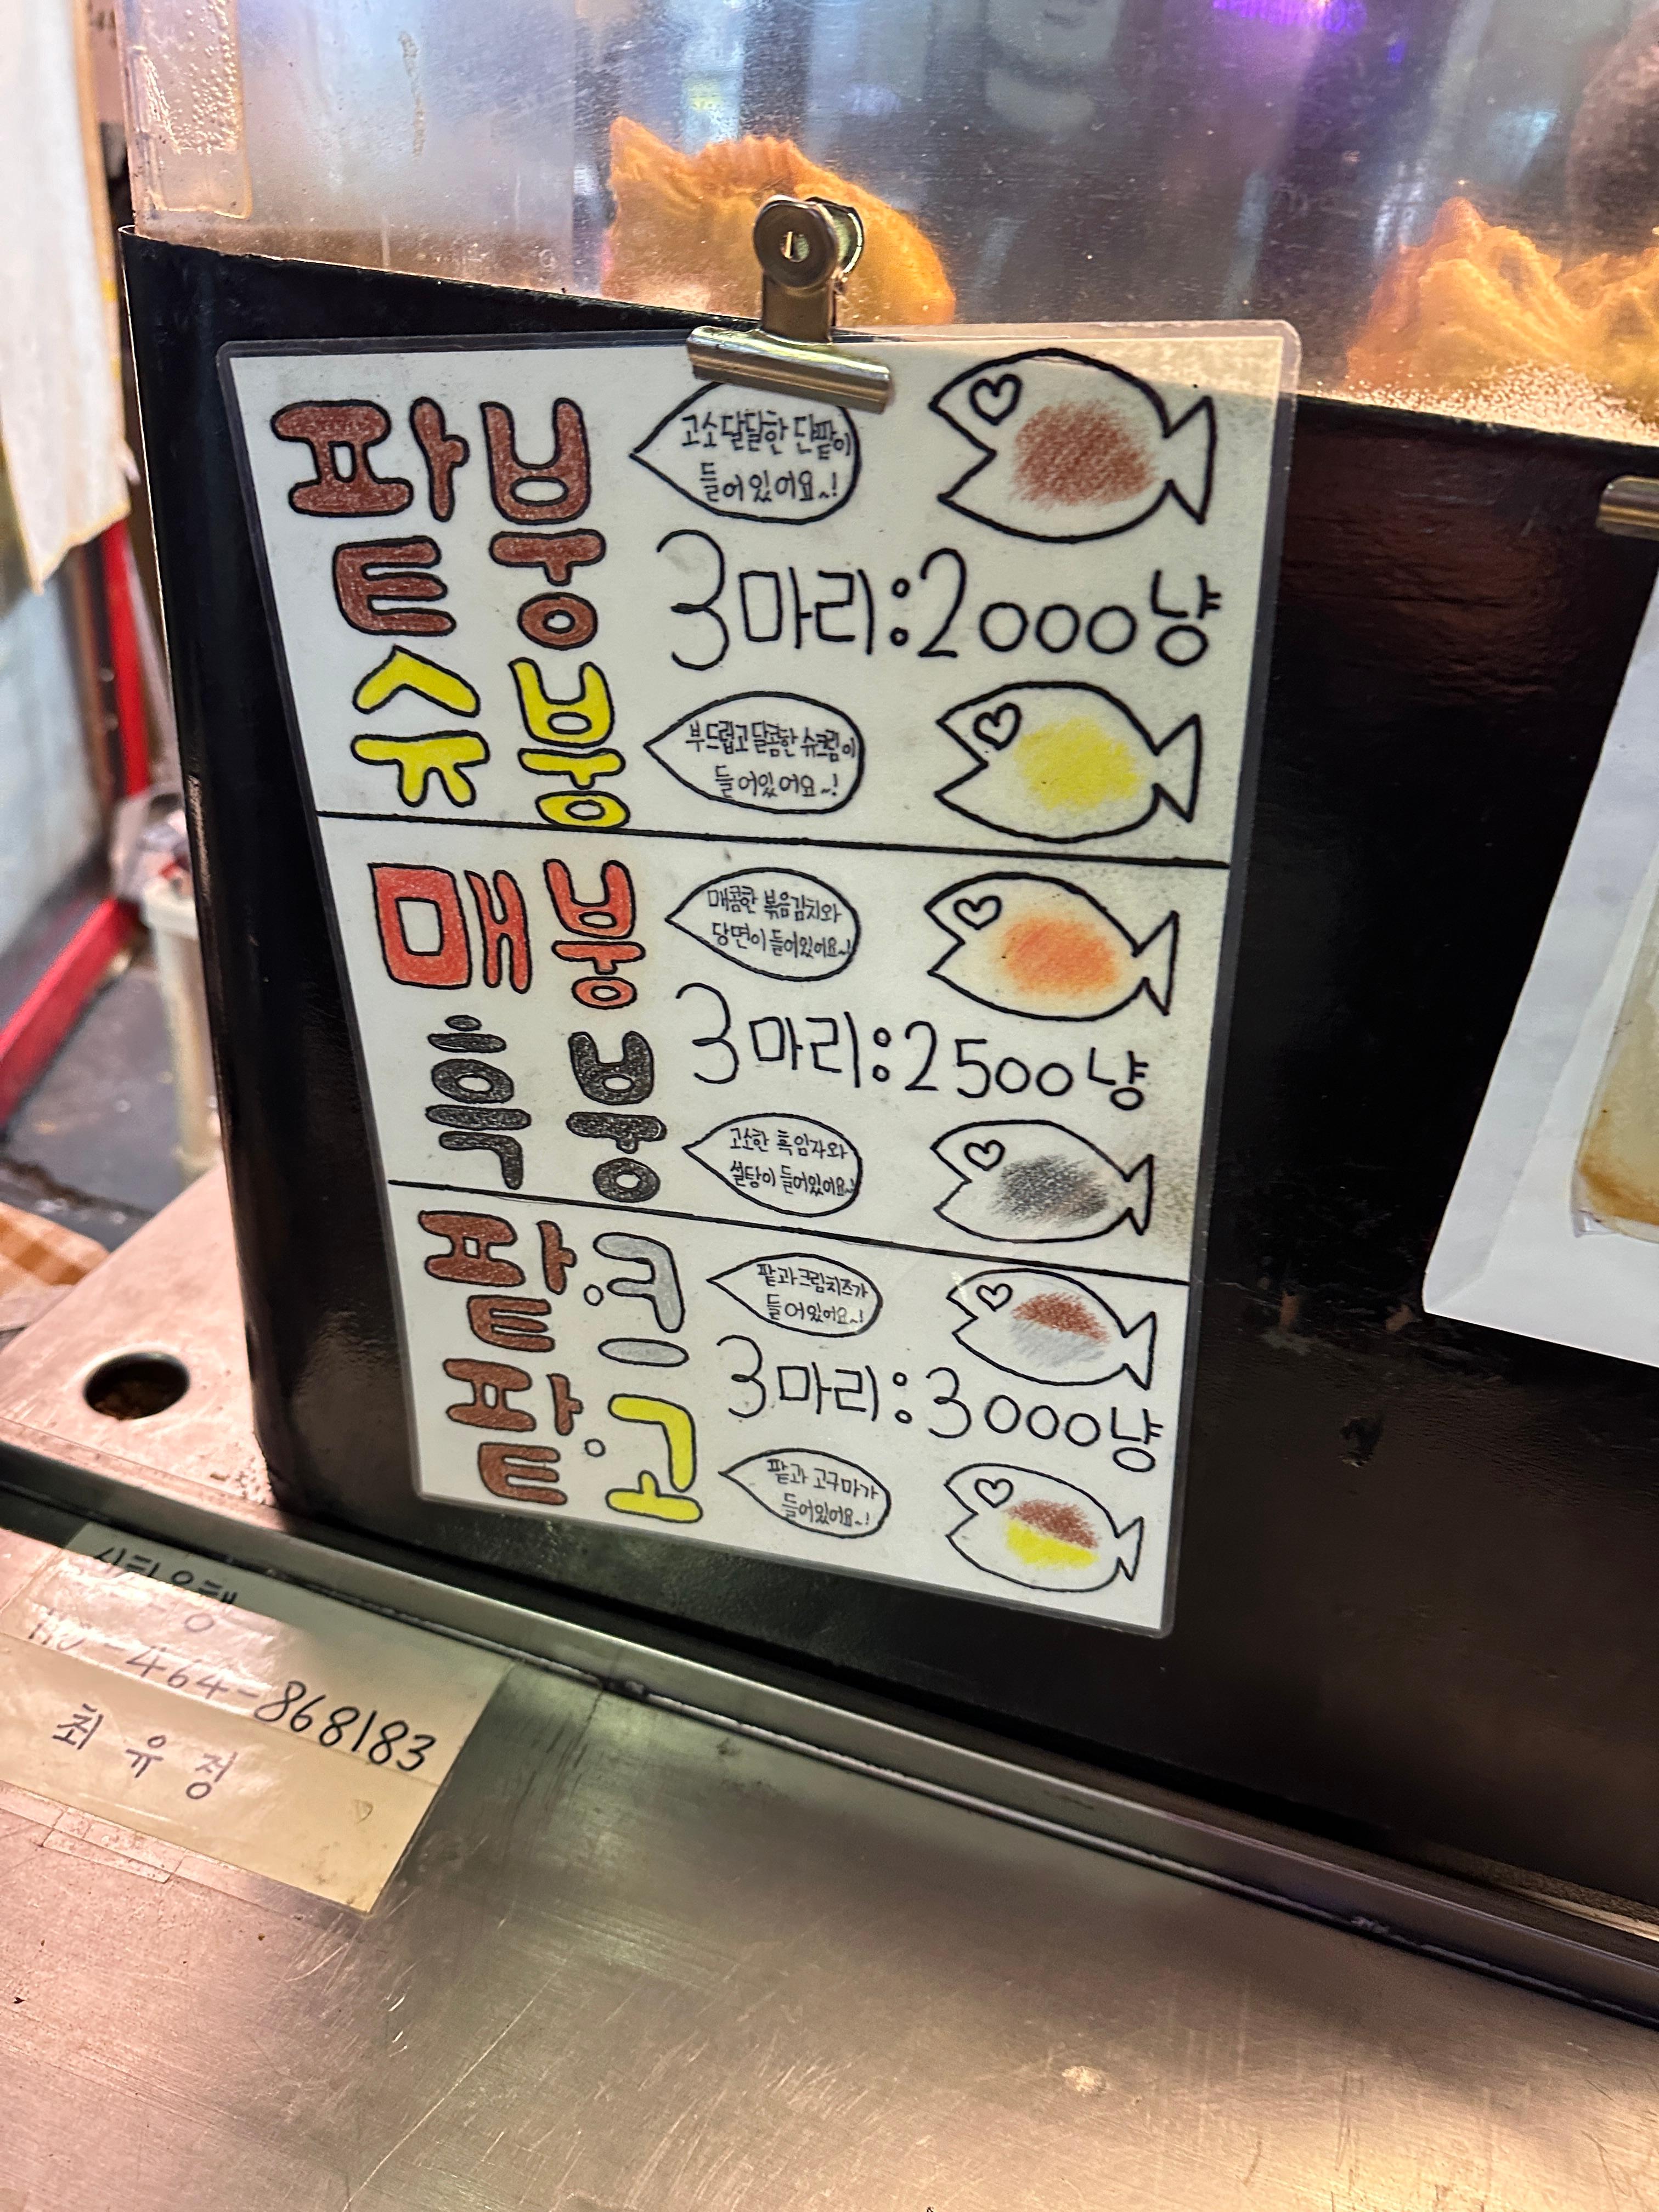 팥붕
고소달달한 단팥이
들어있어요~!
3마리:2000냥
슈붕
부드럽고달콤한 슈크림이
들어있어요~!
매붕
매콤한 볶음김치와
당면이 들어있어요~!
3마리:2500냥
흑붕
고소한 흑임자와
설탕이 들어있어요~!
팥.크
팥과크림치즈가
들어있어요~!
3마리:3000냥
팥.고
팥과 고구마가
들어있어요~!
-464-868183
최유정